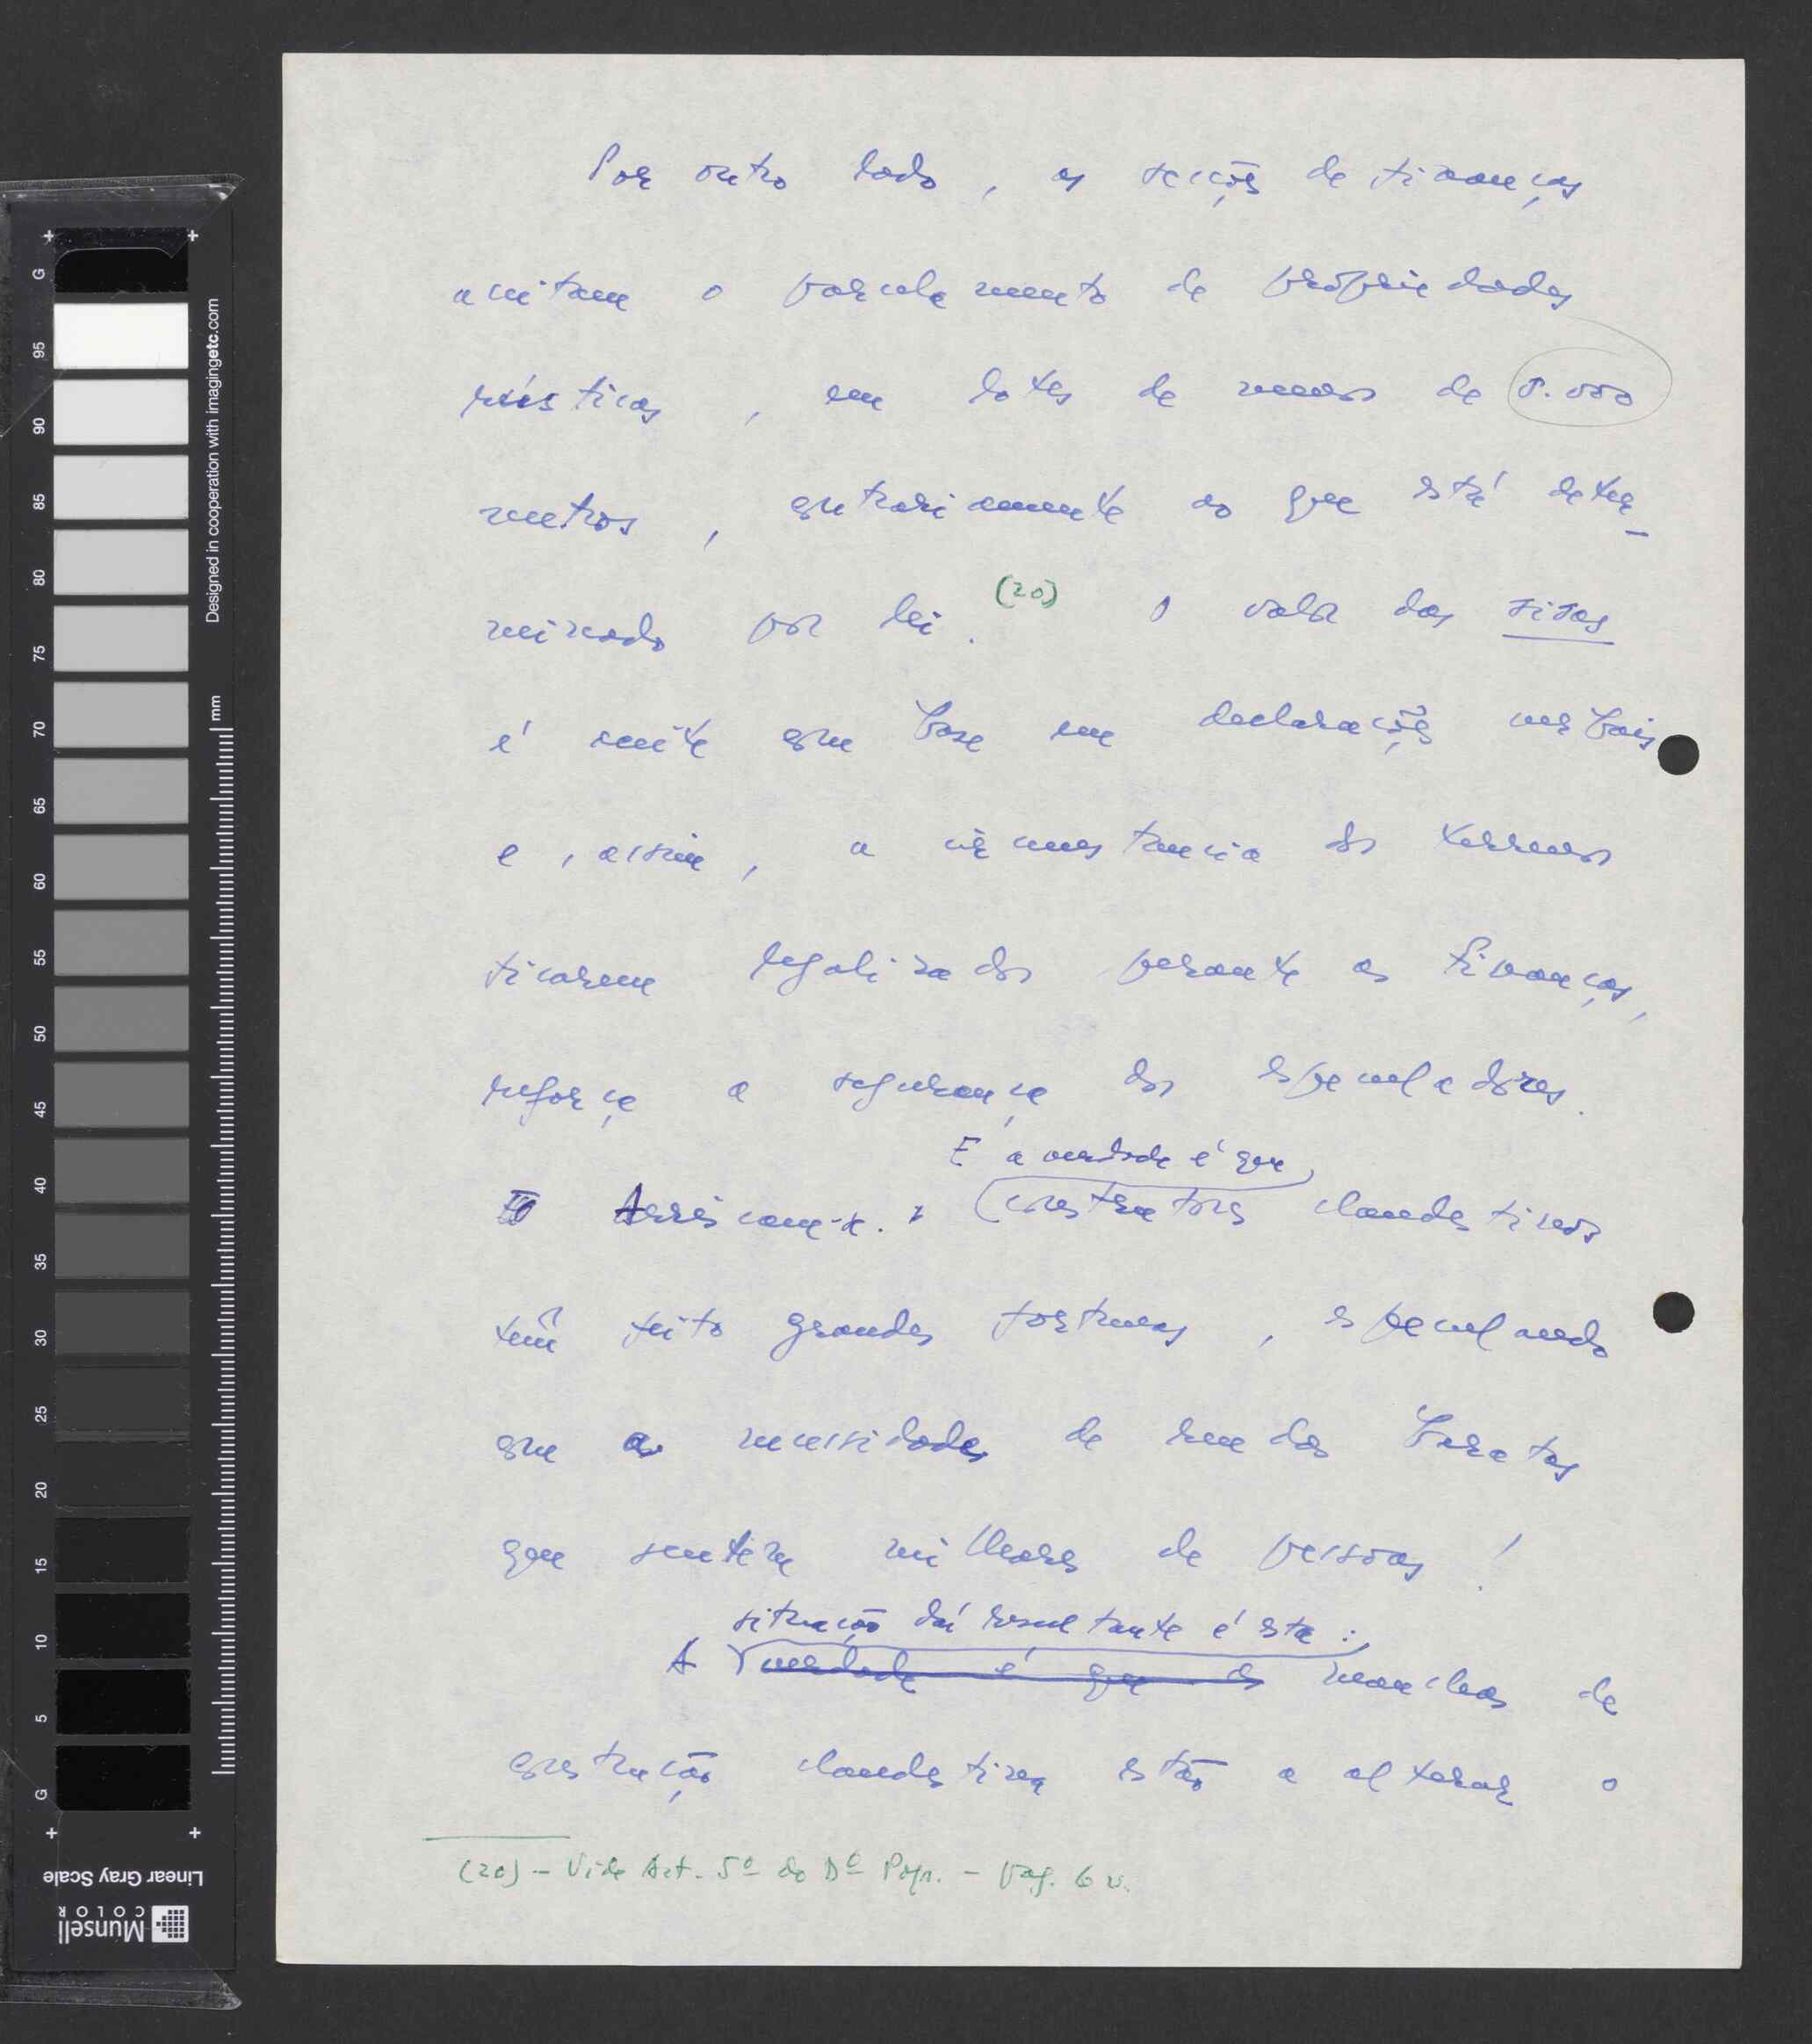 Por outro lado, as secções de finanças
aceitam o parcelamento de propriedades
rústicas, em lotes de menos de 5.000
metros, contrariamente ao que está deter-
minado por lei. (20) O valor das sisas
é aceite com base em declarações verbais
e, assim, a circunstancia dos terrenos
ficarem legalizados perante as finanças,
reforça a segurança dos especuladores.
E a verdade é que
Arriscam-se. construtores clandestinos
têm feito grandes fortunas, especulando
com as necessidades de rendas baratas
que sentem milhares de pessoas!
situação daí resultante é esta:
A verdade é que as manchas de
construção clandestina estão a alterar o
(20) - Vide Art. 5º do Dº Pop. - pag. 6 v.
G 95 90 85 80 75 70 65 60 55 50 45 40 35 30 25 20 15 10 5 G
Designed in cooperation with imagingetc.com
mm
Linear Gray Scale
Munsell
COLOR